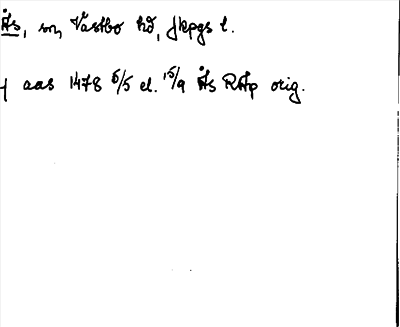 Ås, sn, Västbo hd, Jkpgs l.
aas 1478 6/5 el. 15/9 Ås RAp orig.